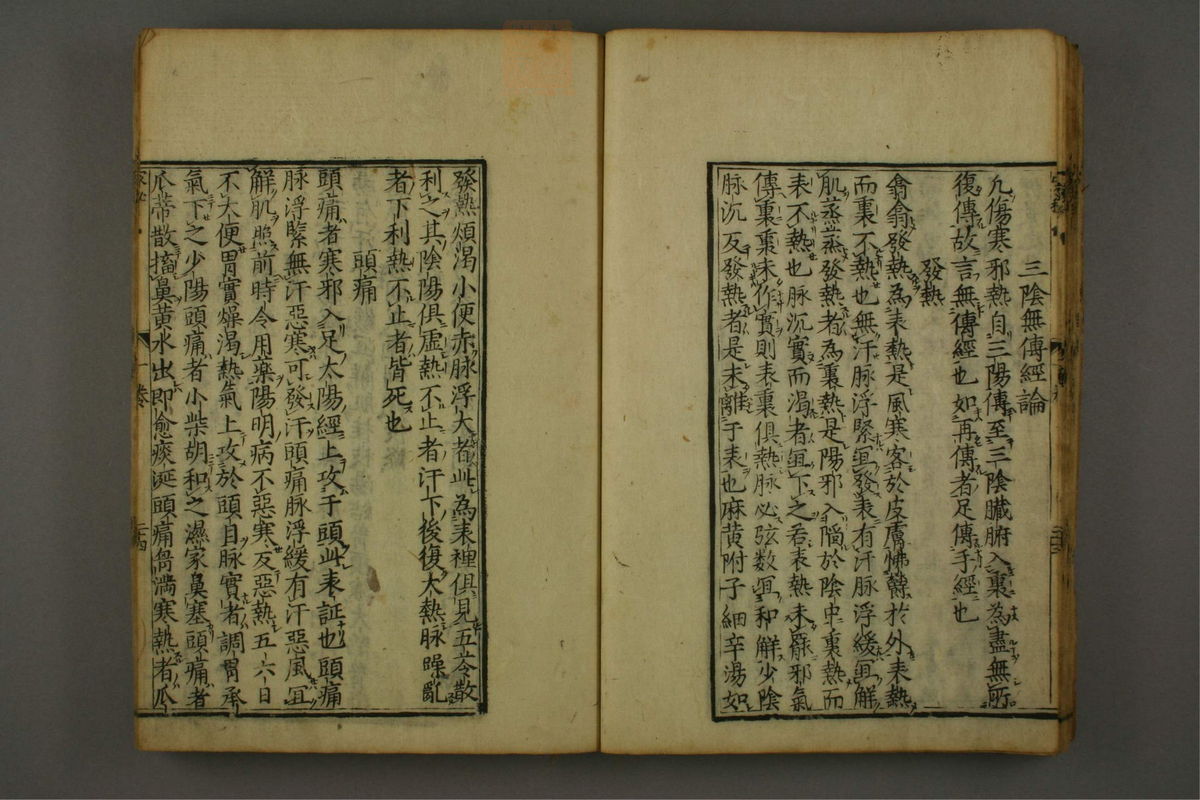 三陰無傳經論
凢傷寒邪熱自三陽傳至三陰臓腑入裏為盡無所
復傳故言無傳經也如再傳者足傳手經也
發熱
翕翕發熱為表熱是風寒客於皮膚怫欝於外表熱
而裏不熱也無汗脉浮緊宜發表有汗脉浮緩宜解
肌蒸蒸發熱者為裏熱是陽邪入陷於陰中裏熱而
表不熱也脉沉實而渴者宜下之若表熱未罷邪氣
傳裏裏未作實則表裏俱熱脉必弦数宜和解少陰
脉沉反發熱者是未離于表也麻黄附子細辛湯如
發熱煩渴小便赤脉浮大者此為表裡俱見五苓散
利之其陰陽俱虚熱不止者汗下後復大熱脉躁亂
者下利熱不止者皆死也
頭痛
頭痛者寒邪入足太陽經上攻于頭此表証也頭痛
脉浮緊無汗惡寒可發汗頭痛脉浮緩有汗惡風宜
解肌照前時令用藥陽明病不惡寒反惡熱五六日
不大便胃實燥渴熱氣上攻於頭目脉實者調胃承
氣下之少陽頭痛者小柴胡和之濕家鼻塞頭痛者
瓜蒂散搐鼻黄水出即愈痰涎頭痛胷満寒熱者瓜